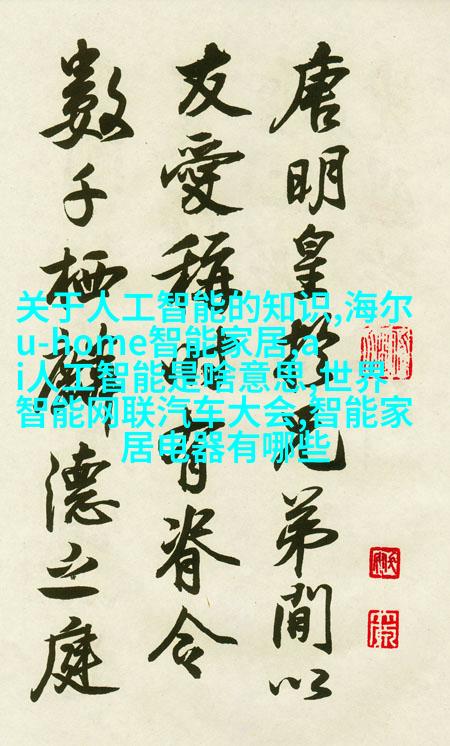 唐明皇兄弟間以
友愛稱時有脊令
數千栖麟德之庭
关于人工智能的知识,海尔
u-home智能家居,a
i人工智能是啥意思,世界
智能网联汽车大会,智能家
居电器有哪些